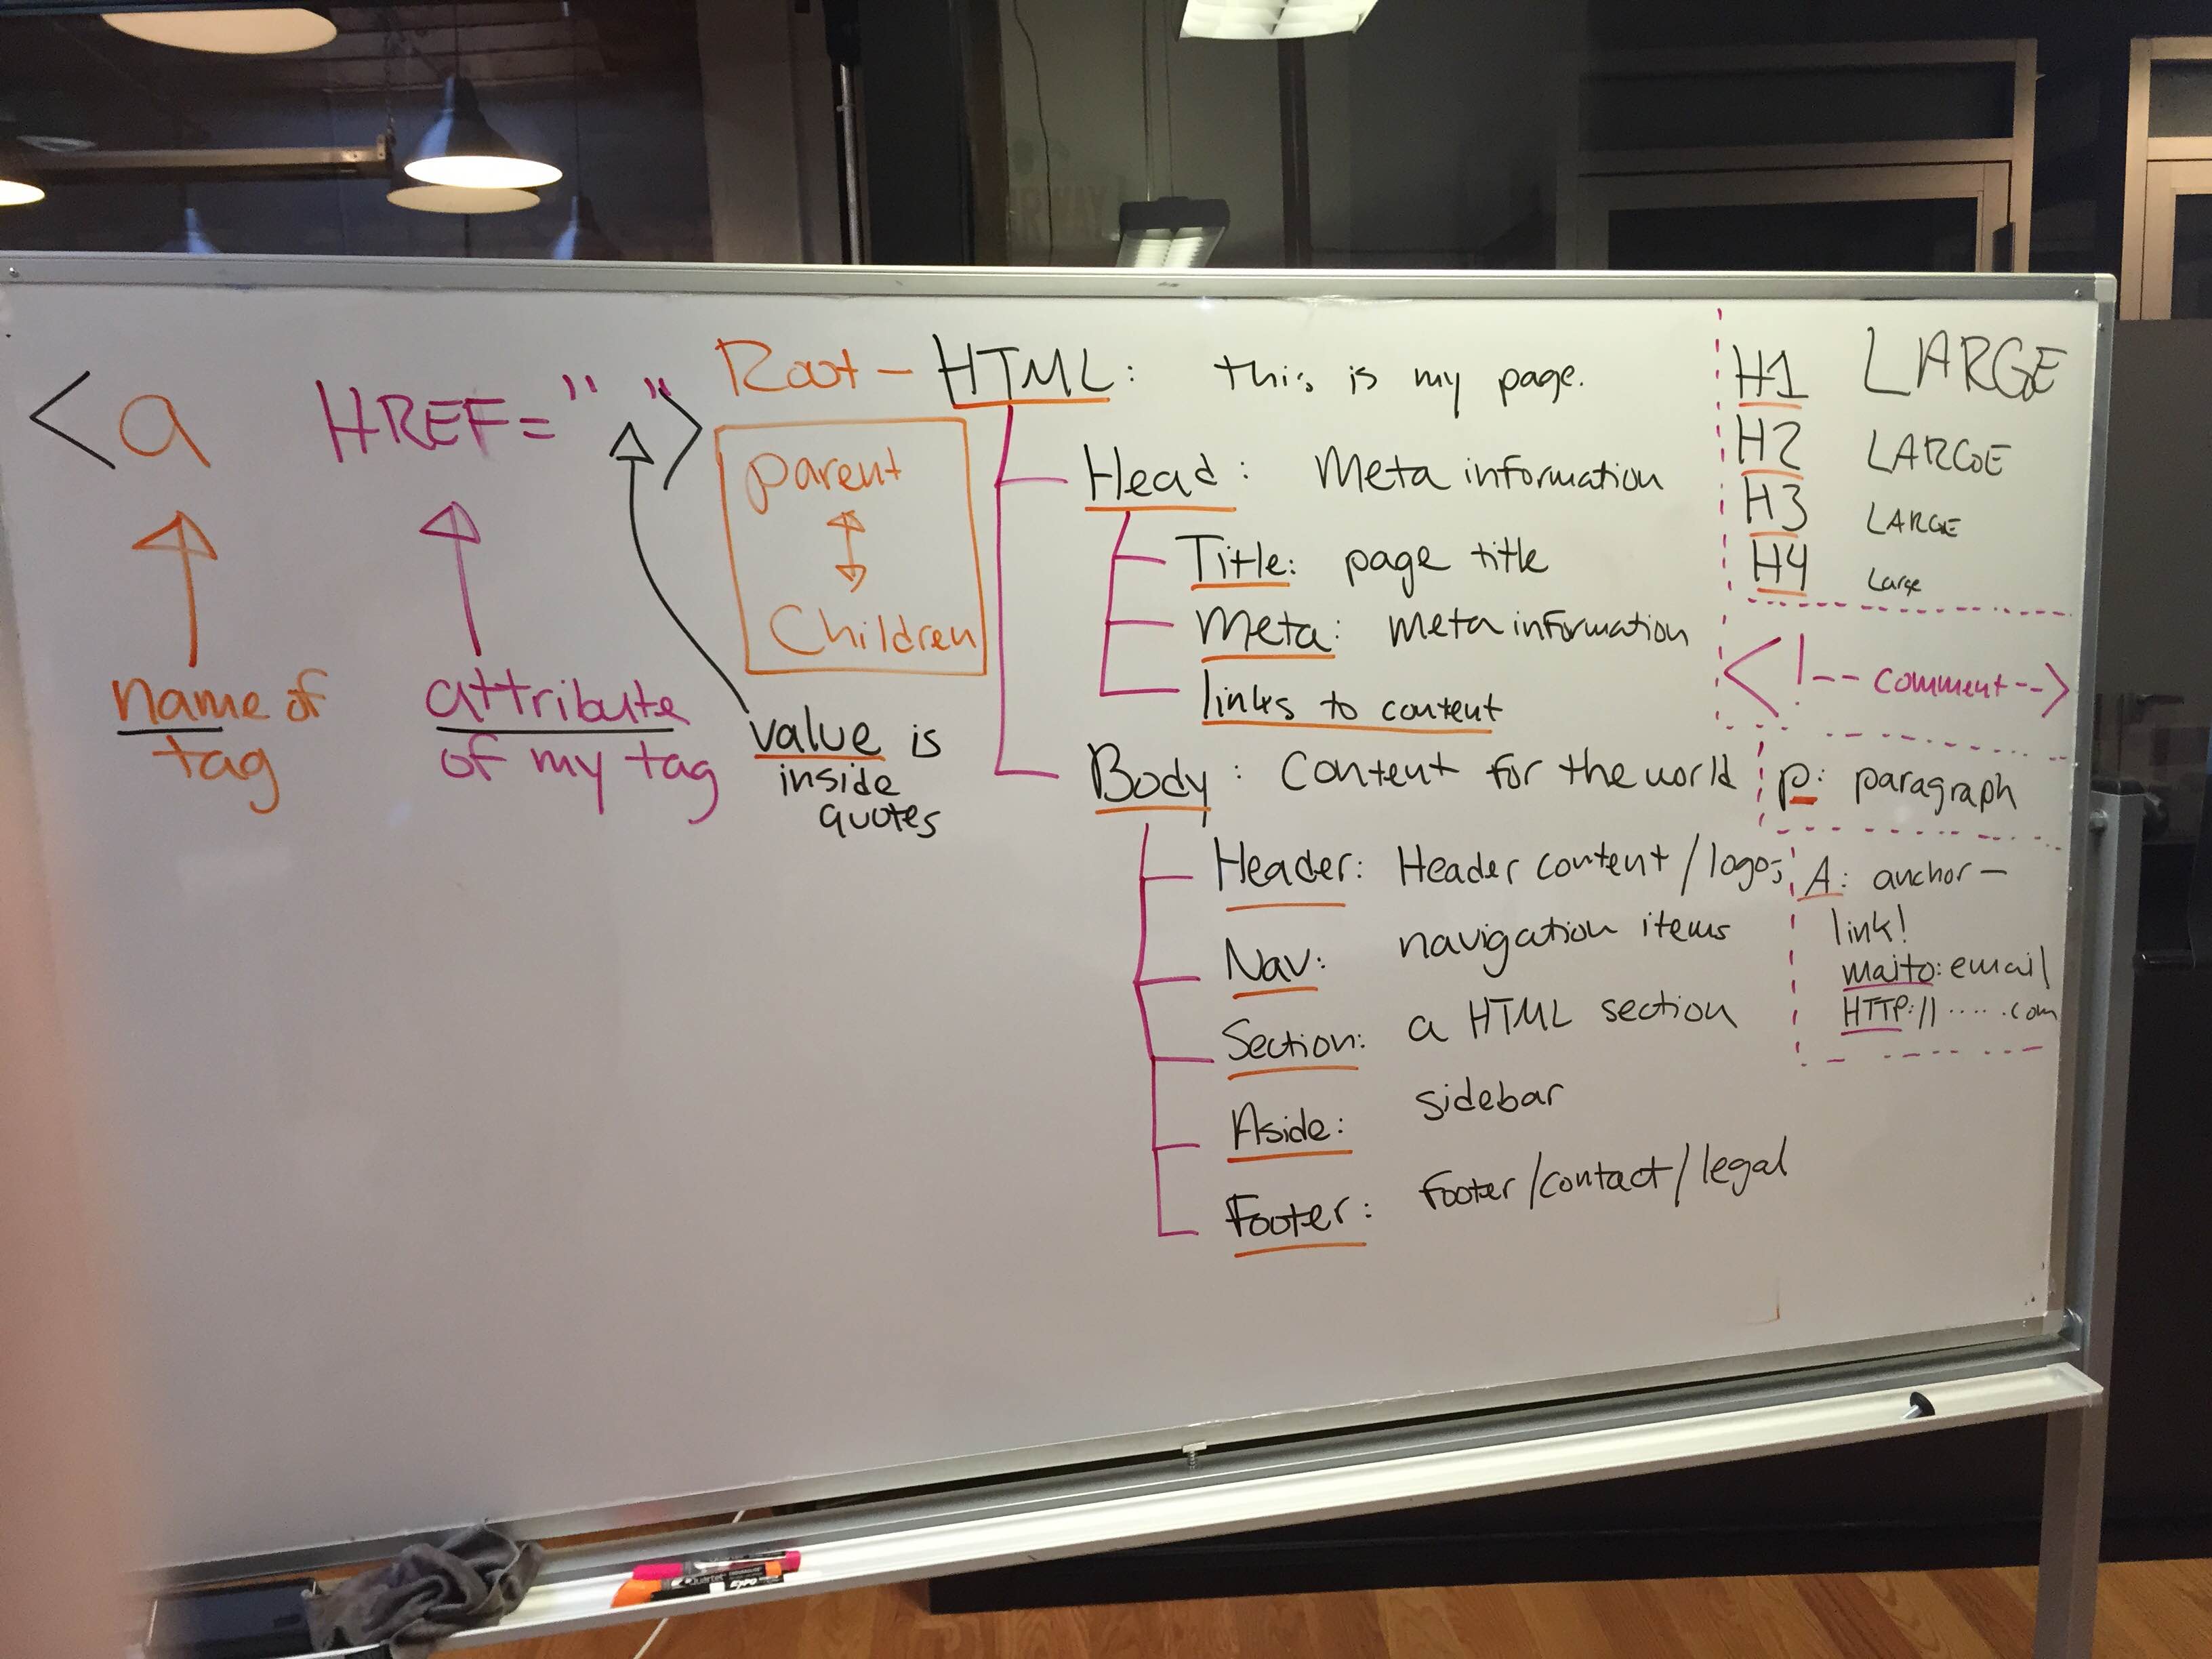 <a HREF=" ">
name of
tag
attribute
of my tag
value is
inside
quotes
Root - HTML: this is my page.
Parent
Children
Head: Meta information
Title: page title
Meta: Meta information
links to content
Body: Content for the world
Header: Header content/logos
Nav: navigation items
Section: a HTML section
Aside: sidebar
Footer: Footer/contact/legal
H1 LARGE
H2 LARGE
H3 LARGE
H4 Large
<!-- comment -->
p: paragraph
A: anchor -
link!
maito: email
HTTP:// ..... .com
Quartet
EXPO